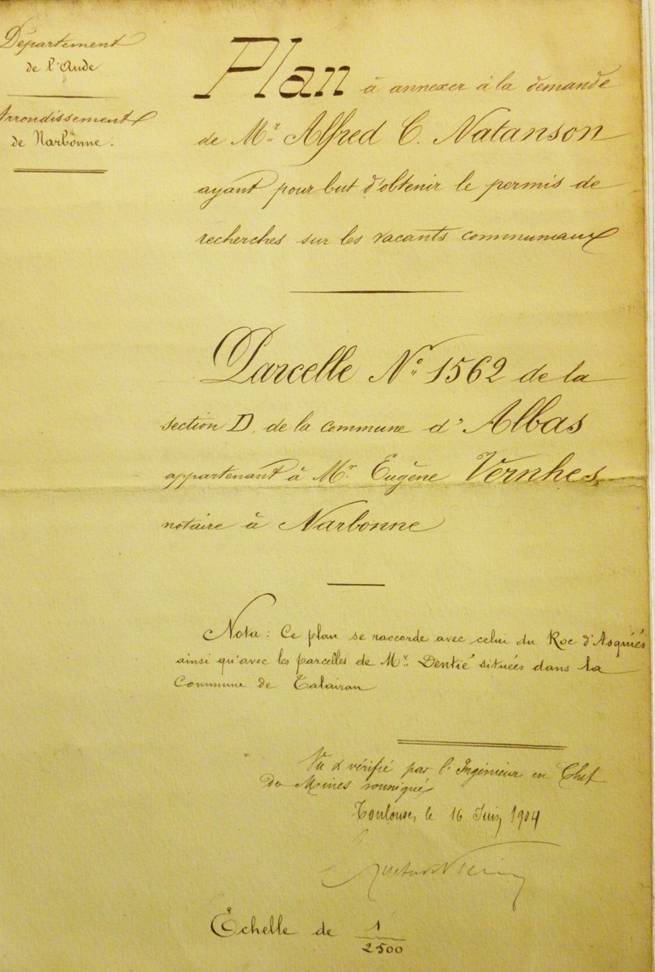 Département
de l'Aude
Arrondissement
de Narbonne.
Plan à annexer à la demande
de Mr. Alfred C. Natanson
ayant pour but d'obtenir le permis de
recherches sur les vacants communaux
Parcelle No. 1562 de la
section D. de la commune d'Albas
appartenant à Mr. Eugène Vernhes,
notaire à Narbonne
Nota: Ce plan se raccorde avec celui du Roc d'Asquiés
ainsi qu'avec les parcelles de Mr. Dentié situées dans la
Commune de Talairan
Vu & vérifié par l'Ingénieur en Chef
des Mines soussigné
Toulouse, le 16 Juin 1904
Echelle de 1/2500